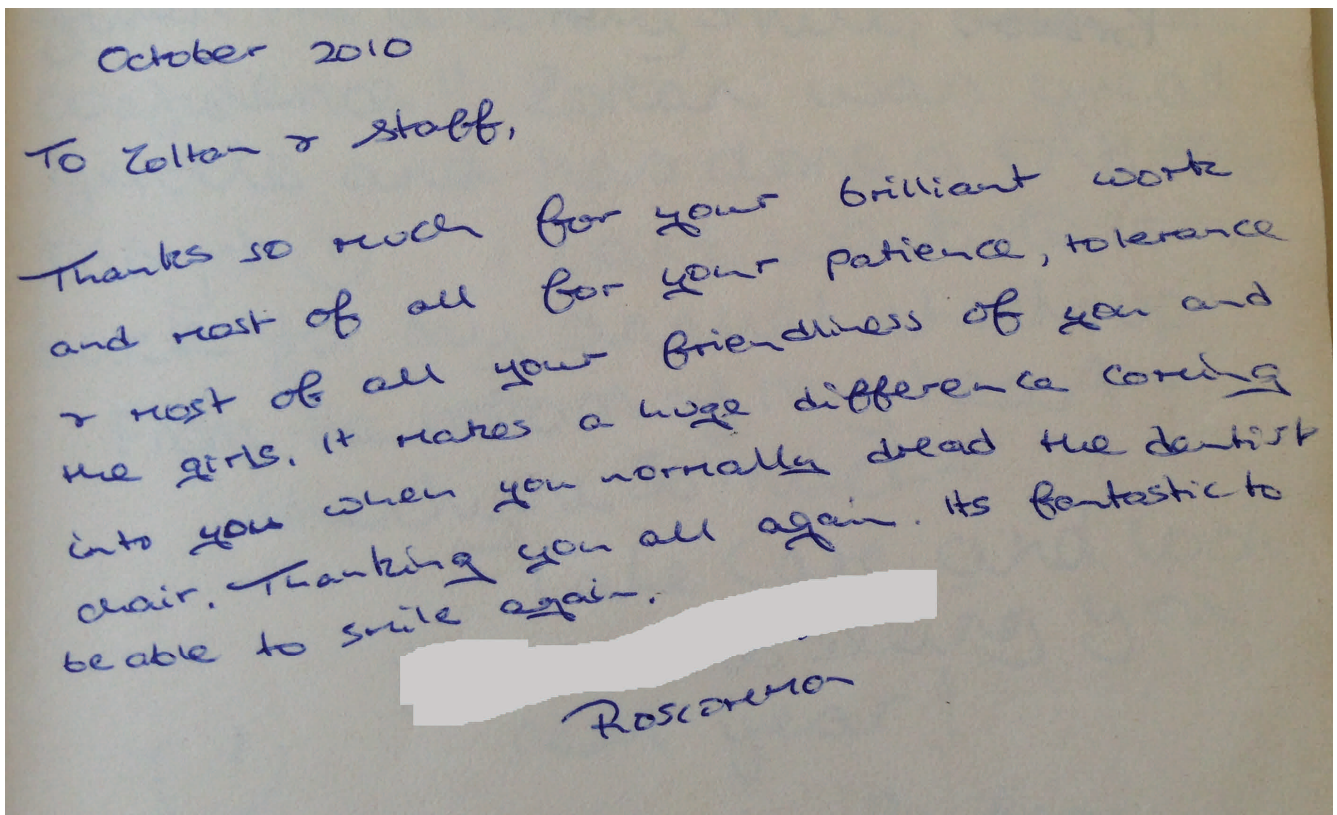 October 2010
To Zoltan & staff,
Thanks so much for your brilliant work
and most of all for your patience, tolerance
& most of all your friendliness of you and
the girls. It makes a huge difference coming
into you when you normally dread the dentist
chair. Thanking you all again. Its fantastic to
be able to smile again.
Roscommon